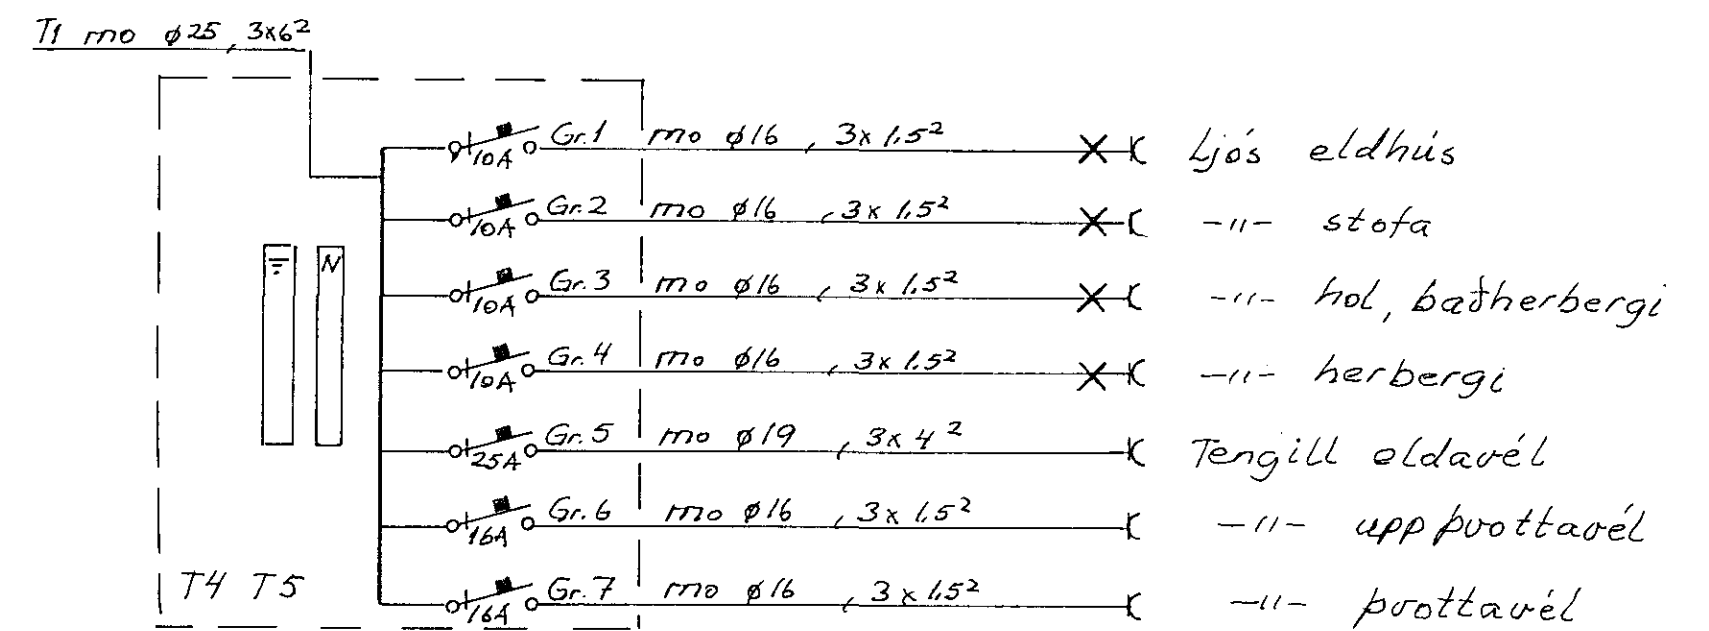 T1 mo ø25, 3x6²
10A Gr.1 mo ø16, 3x1,5² Ljós eldhús
10A Gr.2 mo ø16, 3x1,5² -〃- stofa
10A Gr.3 mo ø16, 3x1,5² -〃- hol, baðherbergi
N
10A Gr.4 mo ø16, 3x1,5² -〃- herbergi
25A Gr.5 mo ø19, 3x4² Tengill eldavél
16A Gr.6 mo ø16, 3x1,5² -〃- uppþvottavél
16A Gr.7 mo ø16, 3x1,5² -〃- þvottavél
T4 T5